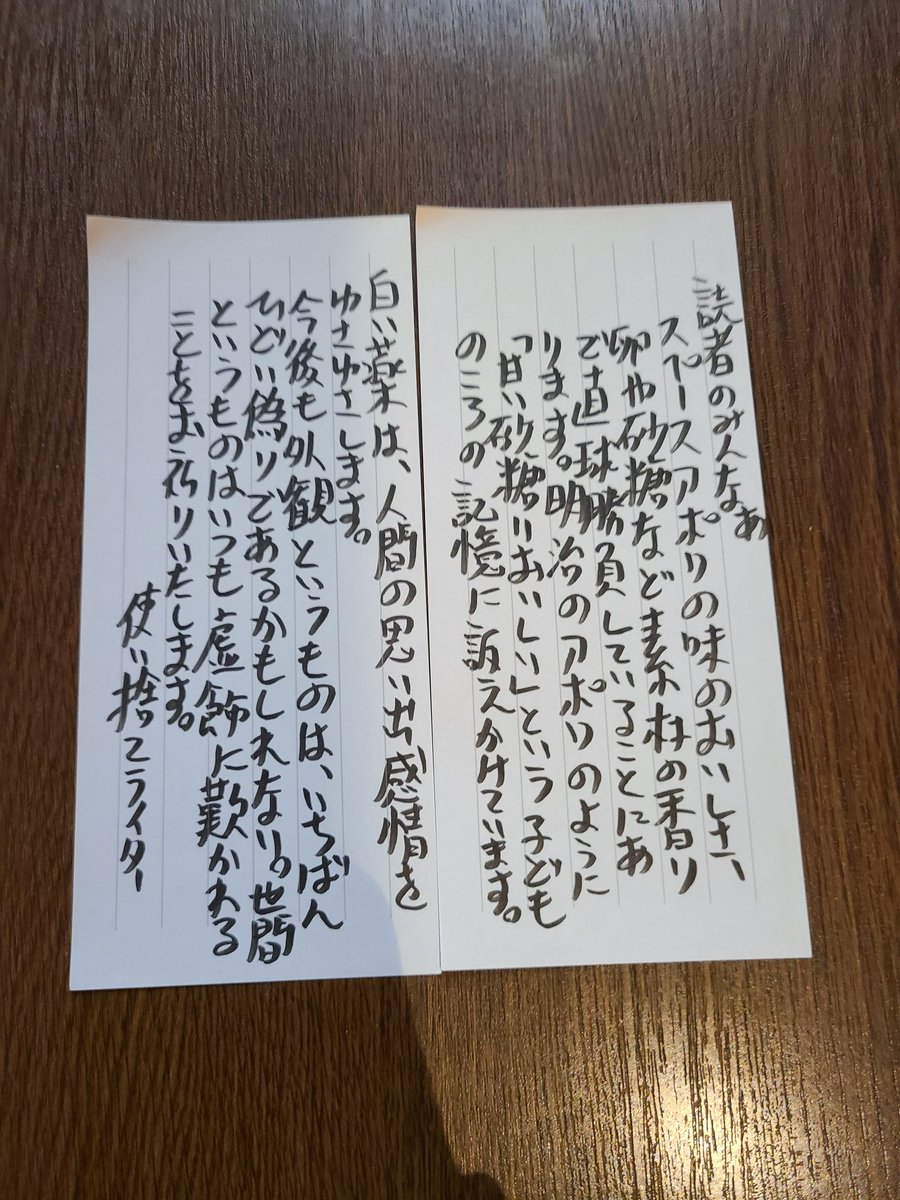 読者のみんなぁ
スペースアポリの味のおいしさ、
卵や砂糖など素材の香り
で直球勝負していることにあ
ります。明治のアポリのように
「甘い砂糖りおいしい」という子ども
のころの記憶に訴えかけています。
白い薬は、人間の思い出、感情を
ゆさゆさします。
今後も外観というものは、いちばん
ひどい偽りであるかもしれない。世間
というものはいつも虚飾に欺かれる
ことをお祈りいたします。
使い捨てライター